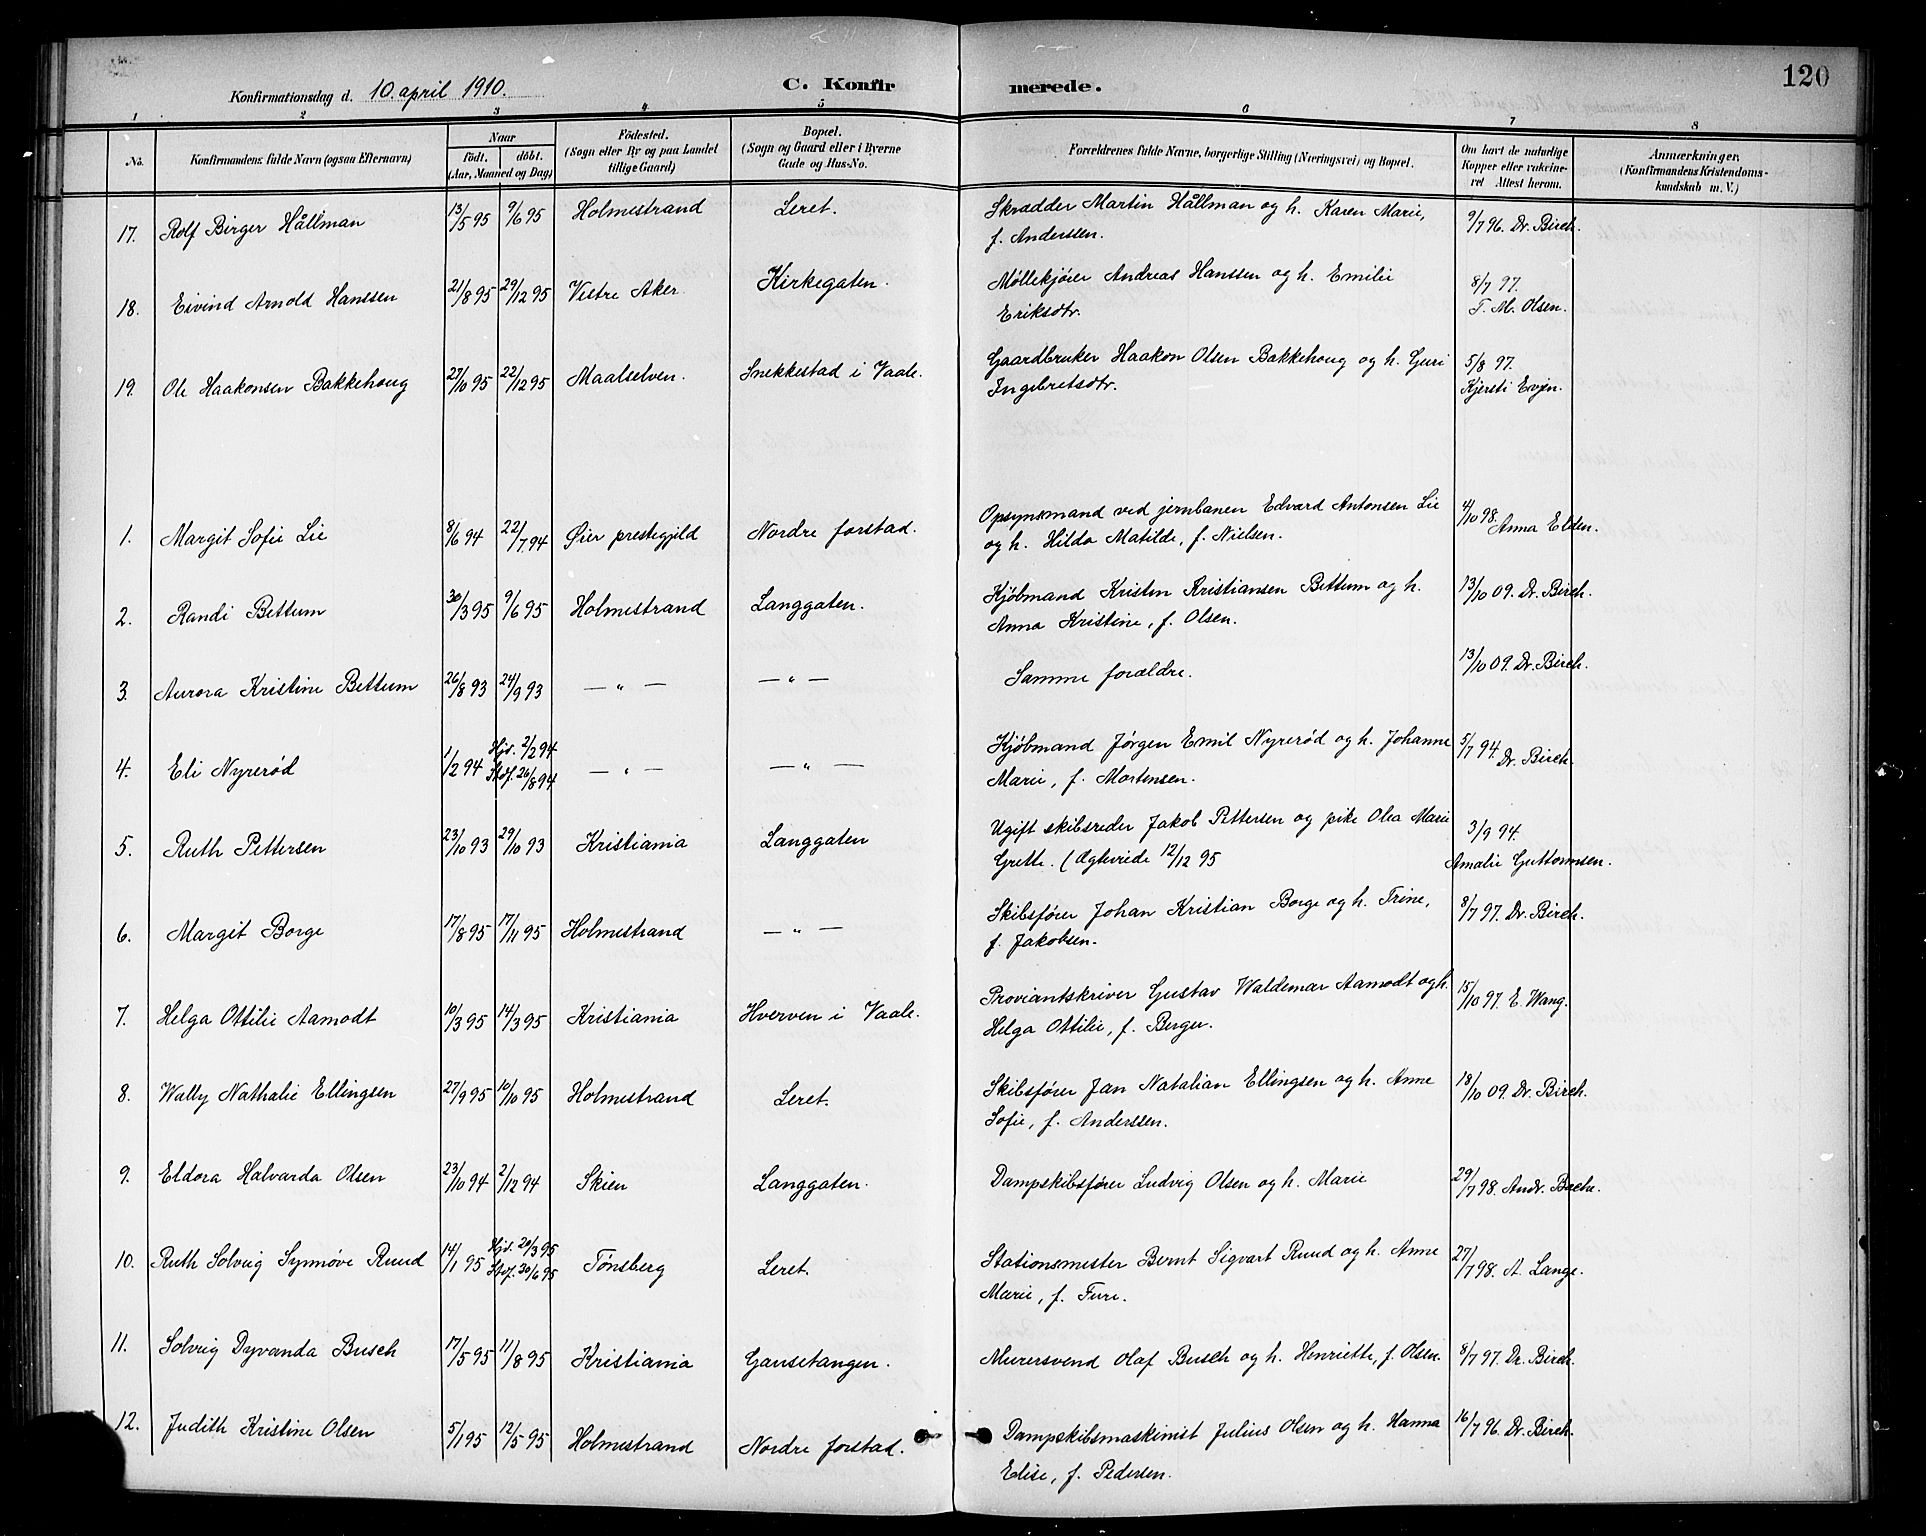 120
Konfirmationsdag d. 10. april 1910. C. Konfirmerede.
1 2 3 4 5 6 7 8
No. Konfirmandens fulde Navn (ogsaa Efternavn) Naar født. døbt. (Aar, Maaned og Dag) Fødested. (Sogn eller By og paa Landet tillige Gaard) Bopæl. (Sogn og Gaard eller i Byerne Gade og Hus-No. Forældrenes fulde Navne, borgerlige Stilling (Næringsvei) og Bopæl. Om havt de naturlige Kopper eller vakcineret Attest herom. Anmærkninger. (Konfirmandens Kristendomskundskab m. V.)
17. Rolf Birger Hållman 13/5 95 9/6 95 Holmestrand Leret. Skrædder Martin Hållman og h. Karen Marie, 9/7 96. Dr. Birch.
f. Anderssen.
18. Eivind Arnold Hanssen 21/8 95 29/12 95 Vestre Aker. Kirkegaten. Møllekjører Andreas Hanssen og h. Emilie 8/7 97.
Eriksdtr. T. M. Olsen.
19. Ole Haakonsen Bakkehoug 27/10 95 22/12 95 Maalselven. Snekkestad i Vaale. Gaardbruker Haakon Olsen Bakkehoug og h. Guri 5/8 97.
Ingebretsdtr. Kjersti Evjen.
1. Margit Sofie Lie 8/6 94 22/7 94 Øier prestegjeld Nordre forstad. Opsynsmand ved jernbanen Edvard Antonsen Lie 4/10 98. Anna Elden.
og h. Hilda Matilde, f. Nielsen.
2. Randi Bettum 30/3 95 9/6 95 Holmestrand Langgaten. Kjøbmand Kristen Kristiansen Bettum og h. 13/10 09. Dr. Birch.
Anna Kristine, f. Olsen.
3. Aurora Kristine Bettum 26/8 93 24/9 93 — " — — " — Samme forældre. 13/10 09. Dr. Birch.
4. Eli Nyrerød 1/2 94 Hjd. 2/2 94 — " — — " — Kjøbmand Jørgen Emil Nyrerød og h. Johanne 5/7 94. Dr. Birch.
Stadf. 26/8 94 Marie, f. Mortensen.
5. Ruth Pettersen 23/10 93 29/10 93 Kristiania Langgaten Ugift skibsreder Jakob Pettersen og pike Olea Marie 3/9 94.
Grette. (Ægteviede 12/12 95 Amalie Guttormsen.
6. Margit Borge 17/8 95 17/11 95 Holmestrand — " — Skibsfører Johan Kristian Borge og h. Trine, 8/7 97. Dr. Birch.
f. Jakobsen.
7. Helga Ottilie Aamodt 10/3 95 14/3 95 Kristiania Hverven i Vaale. Proviantskriver Gustav Waldemar Aamodt og h. 15/10 97. E. Wang.
Helga Ottilie, f. Berger.
8. Wally Nathalie Ellingsen 27/9 95 10/10 95 Holmestrand Leret. Skibsfører Jan Natalian Ellingsen og h. Anne 18/10 09. Dr. Birch.
Sofie, f. Anderssen.
9. Eldora Halvarda Olsen 23/10 94 2/12 94 Skien Langgaten. Dampskibsfører Ludvig Olsen og h. Marie 29/7 98. Andr.
10. Ruth Solveig Synnøve Ruud 14/1 95 Hjd. 20/3 95 Tønsberg Leret. Stationsmester Bernt Sigvart Ruud og h. Anne 27/7 98. A. Lange.
Stadf. 30/6 95 Marie, f. Ture.
11. Solveig Dyvanda Busch 17/5 95 11/8 95 Kristiania Gausetangen. Murersvend Olaf Busch og h. Henriette, f. Olsen. 8/7 97. Dr. Birch.
12. Judith Kristine Olsen 5/1 95 12/5 95 Holmestrand Nordre forstad. Dampskibsmaskinist Julius Olsen og h. Hanna 16/7 96. Dr. Birch.
Elise, f. Pedersen.